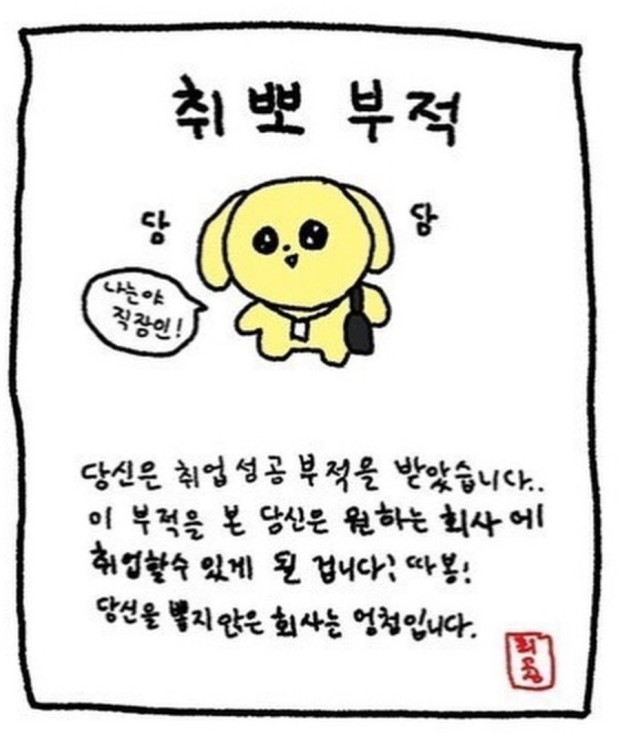 취뽀 부적
당 담
나는야
직장인!
당신은 취업성공 부적을 받았습니다..
이 부적을 본 당신은 원하는 회사에
취업할수 있게 될 겁니다! 따봉!
당신을 뽑지않은 회사는 멍청입니다.